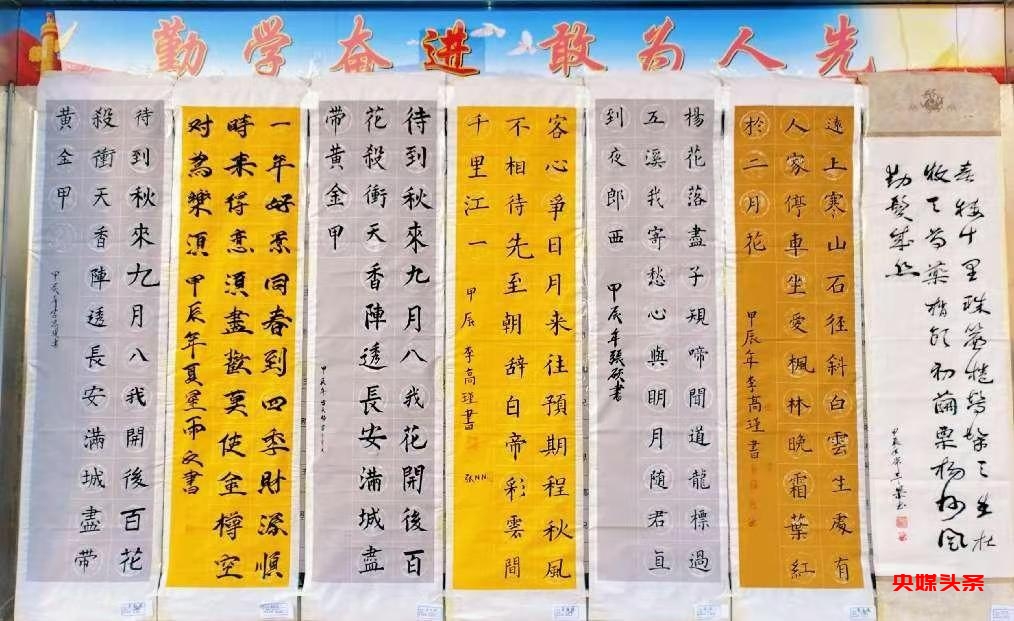 勤学奋进 敢为人先
待到秋來九月八我開後百花
殺衝天香陣透長安滿城盡帶
黃金甲
一年好景同春到四季財源順
時来得意須盡歡莫使金樽空
对為樂須 甲辰年夏星雨文書
待到秋來九月八我花開後百
花殺衝天香陣透長安满城盡
带黄金甲
客心爭日月来往預期程秋風
不相待先至朝辞白帝彩雲間
千里江一 甲辰 李高瑾書
楊花落盡子規啼聞道龍標過
五溪我寄愁心與明月随君直
到夜郎西 甲辰年張書
遠上寒山石径斜白雲生處有
人家停車坐愛楓林晚霜葉紅
於二月花 甲辰年李高瑾書
十里珠簾捲髣髴三生杜
牧之藥梢頭初繭栗揚州風
鬓成丝
央媒头条